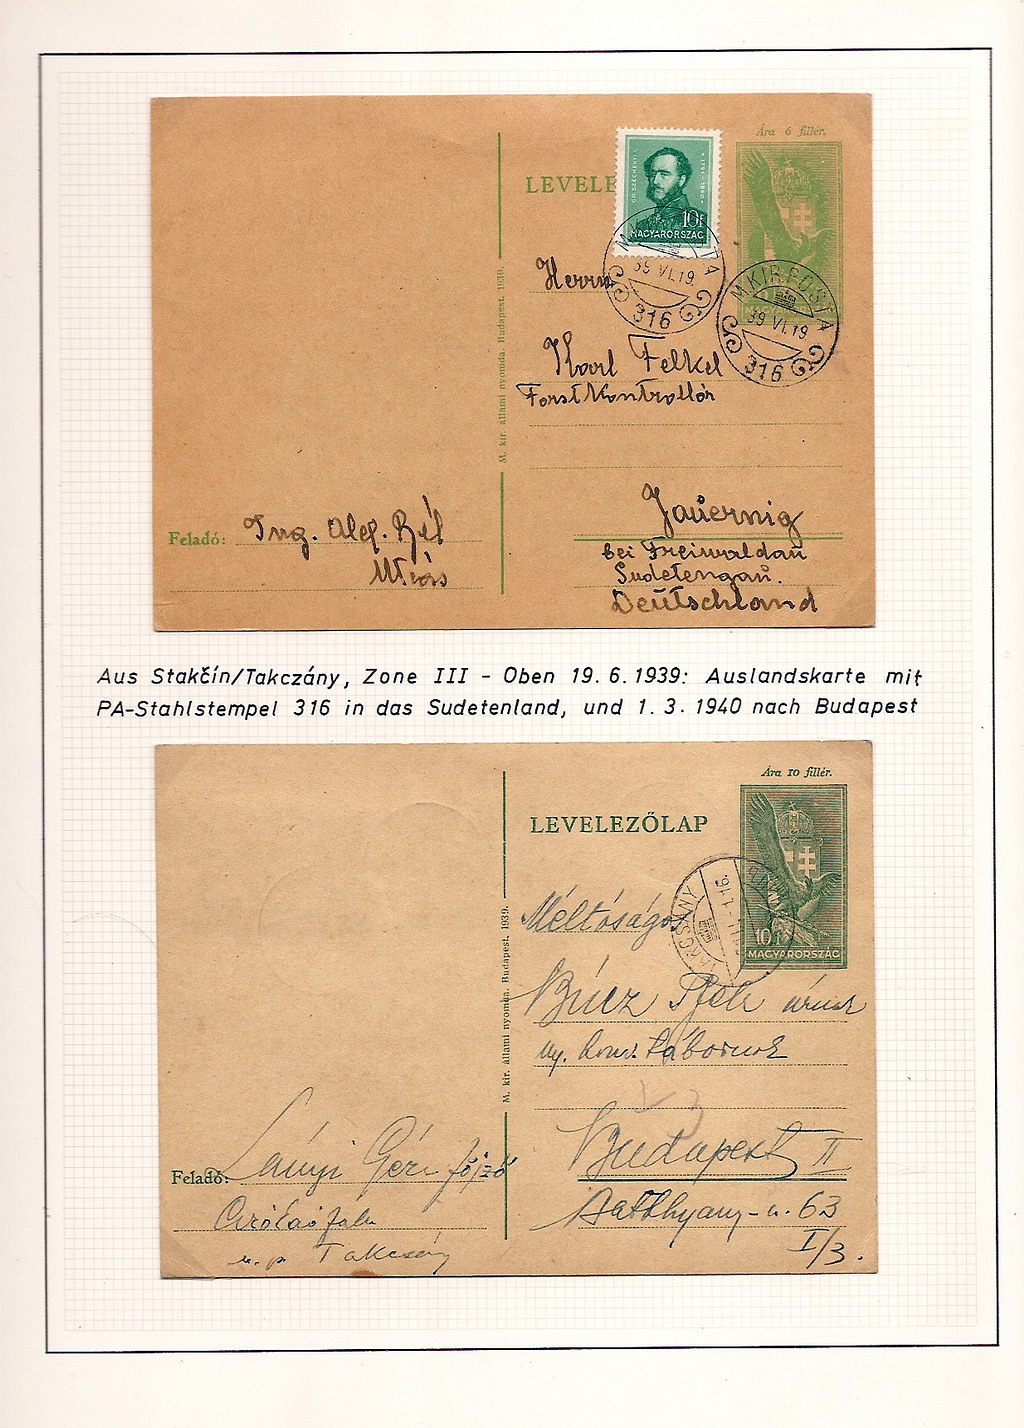 Ára 6 fillér.
LEVELE
GR. SZÉCHENYI I.
1791-1860
10f
MAGYARORSZÁG
39 VI.19.
316
M.KIR.POSTA
39 VI.19
316
Herrn
Karl Felkel
Forstkontrollór
M. kir. állami nyomda. Budapest. 1939.
Jauernig
bei Freiwaldau
Sudetengau.
Deutschland
Feladó: Ing.
Aus Stakčín/Takczány, Zone III - Oben 19.6.1939: Auslandskarte mit
PA-Stahlstempel 316 in das Sudetenland, und 1.3.1940 nach Budapest
Ára 10 fillér.
LEVELEZŐLAP
10f
MAGYARORSZÁG
TAKCSÁNY
Méltóságos
Búcz
úrnak
ny. tábornok
M. kir. állami nyomda. Budapest. 1939.
Budapest II
Batthyany-u. 63
I/3.
Feladó: Lányi Géza
u. p. Takcsány